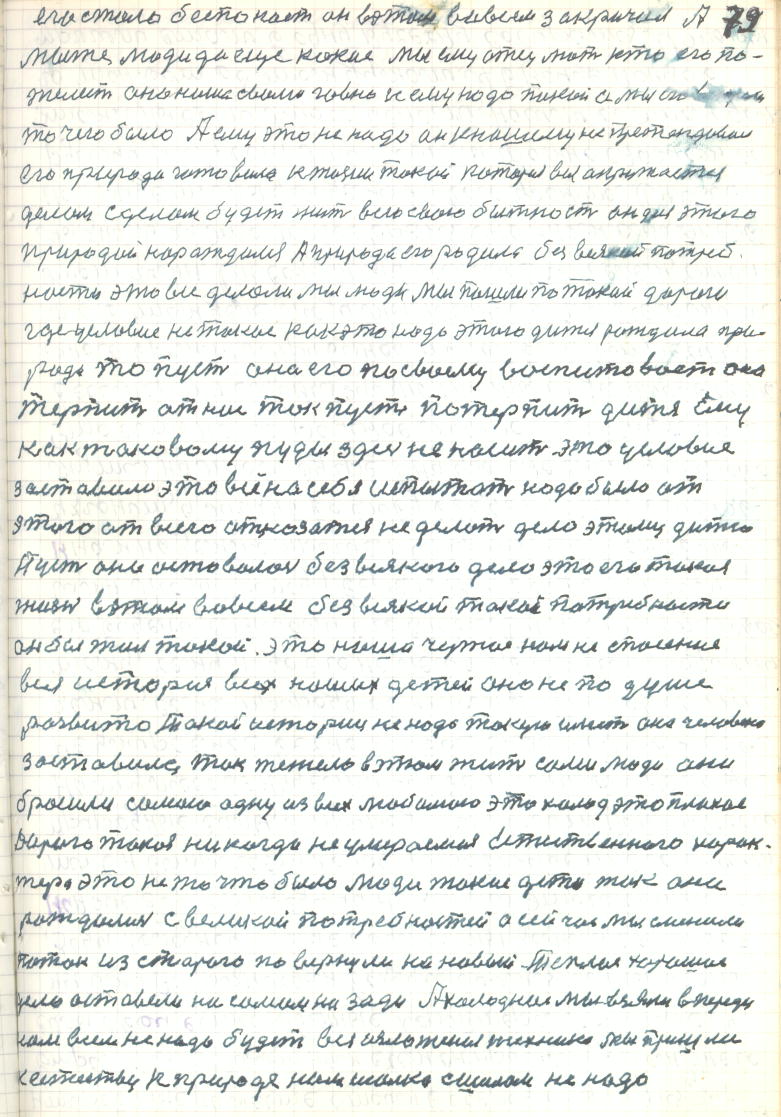 его стало беспокоит он в этом вовсем закричал А 79
мы же люди да еще какие мы ему отец мат кто его по-
жалеит она наша свами говно и ему надо такой а мы его
то чего было А ему это не надо он к нашему не претендовал
его природа готовила к жизни такой которая вся окружается
делом сделан будет жит всю свою бытност он для этого
природой нараждался А природа его родила без всякой потреб.
ности это все делали мы люди мы пошли по такой дороги
где условие не такое как это надо этого дитя рождала при-
рода то пуст она его посвоему воспитовоет она
терпит от нас так пуст потерпит дитя Ему
как таковому нужды здес не носит это условие
заставило это всё на себя испытат надо было от
этого от всего отказатся не делат дело этому дитю
Пуст он оставался без всякого дело это его такая
жизн в этом вовсем без всякой такой потребности
он бы жил такой. это наша чужое нам не спасение
вся история всех наших детей оно не по душе
развито Такой истории не надо такую имет она человека
заставила, так тежело в этом жит сами люди они
бросили самою одну из всех любимою это холод это плохое
Дорога такая никогда не умираемая Естественного харак-
тера это не то что было люди такие дети так они
рождались с великой потребностей а сейчас мы сменили
поток из старого повернули на новый. Теплое хорошие
дело оставели на самом на зади А холодное мы взяли впереди
нам всем не надо будет вся изложения техника мы пришли
к естеству к природе нам иголка с шилом не надо